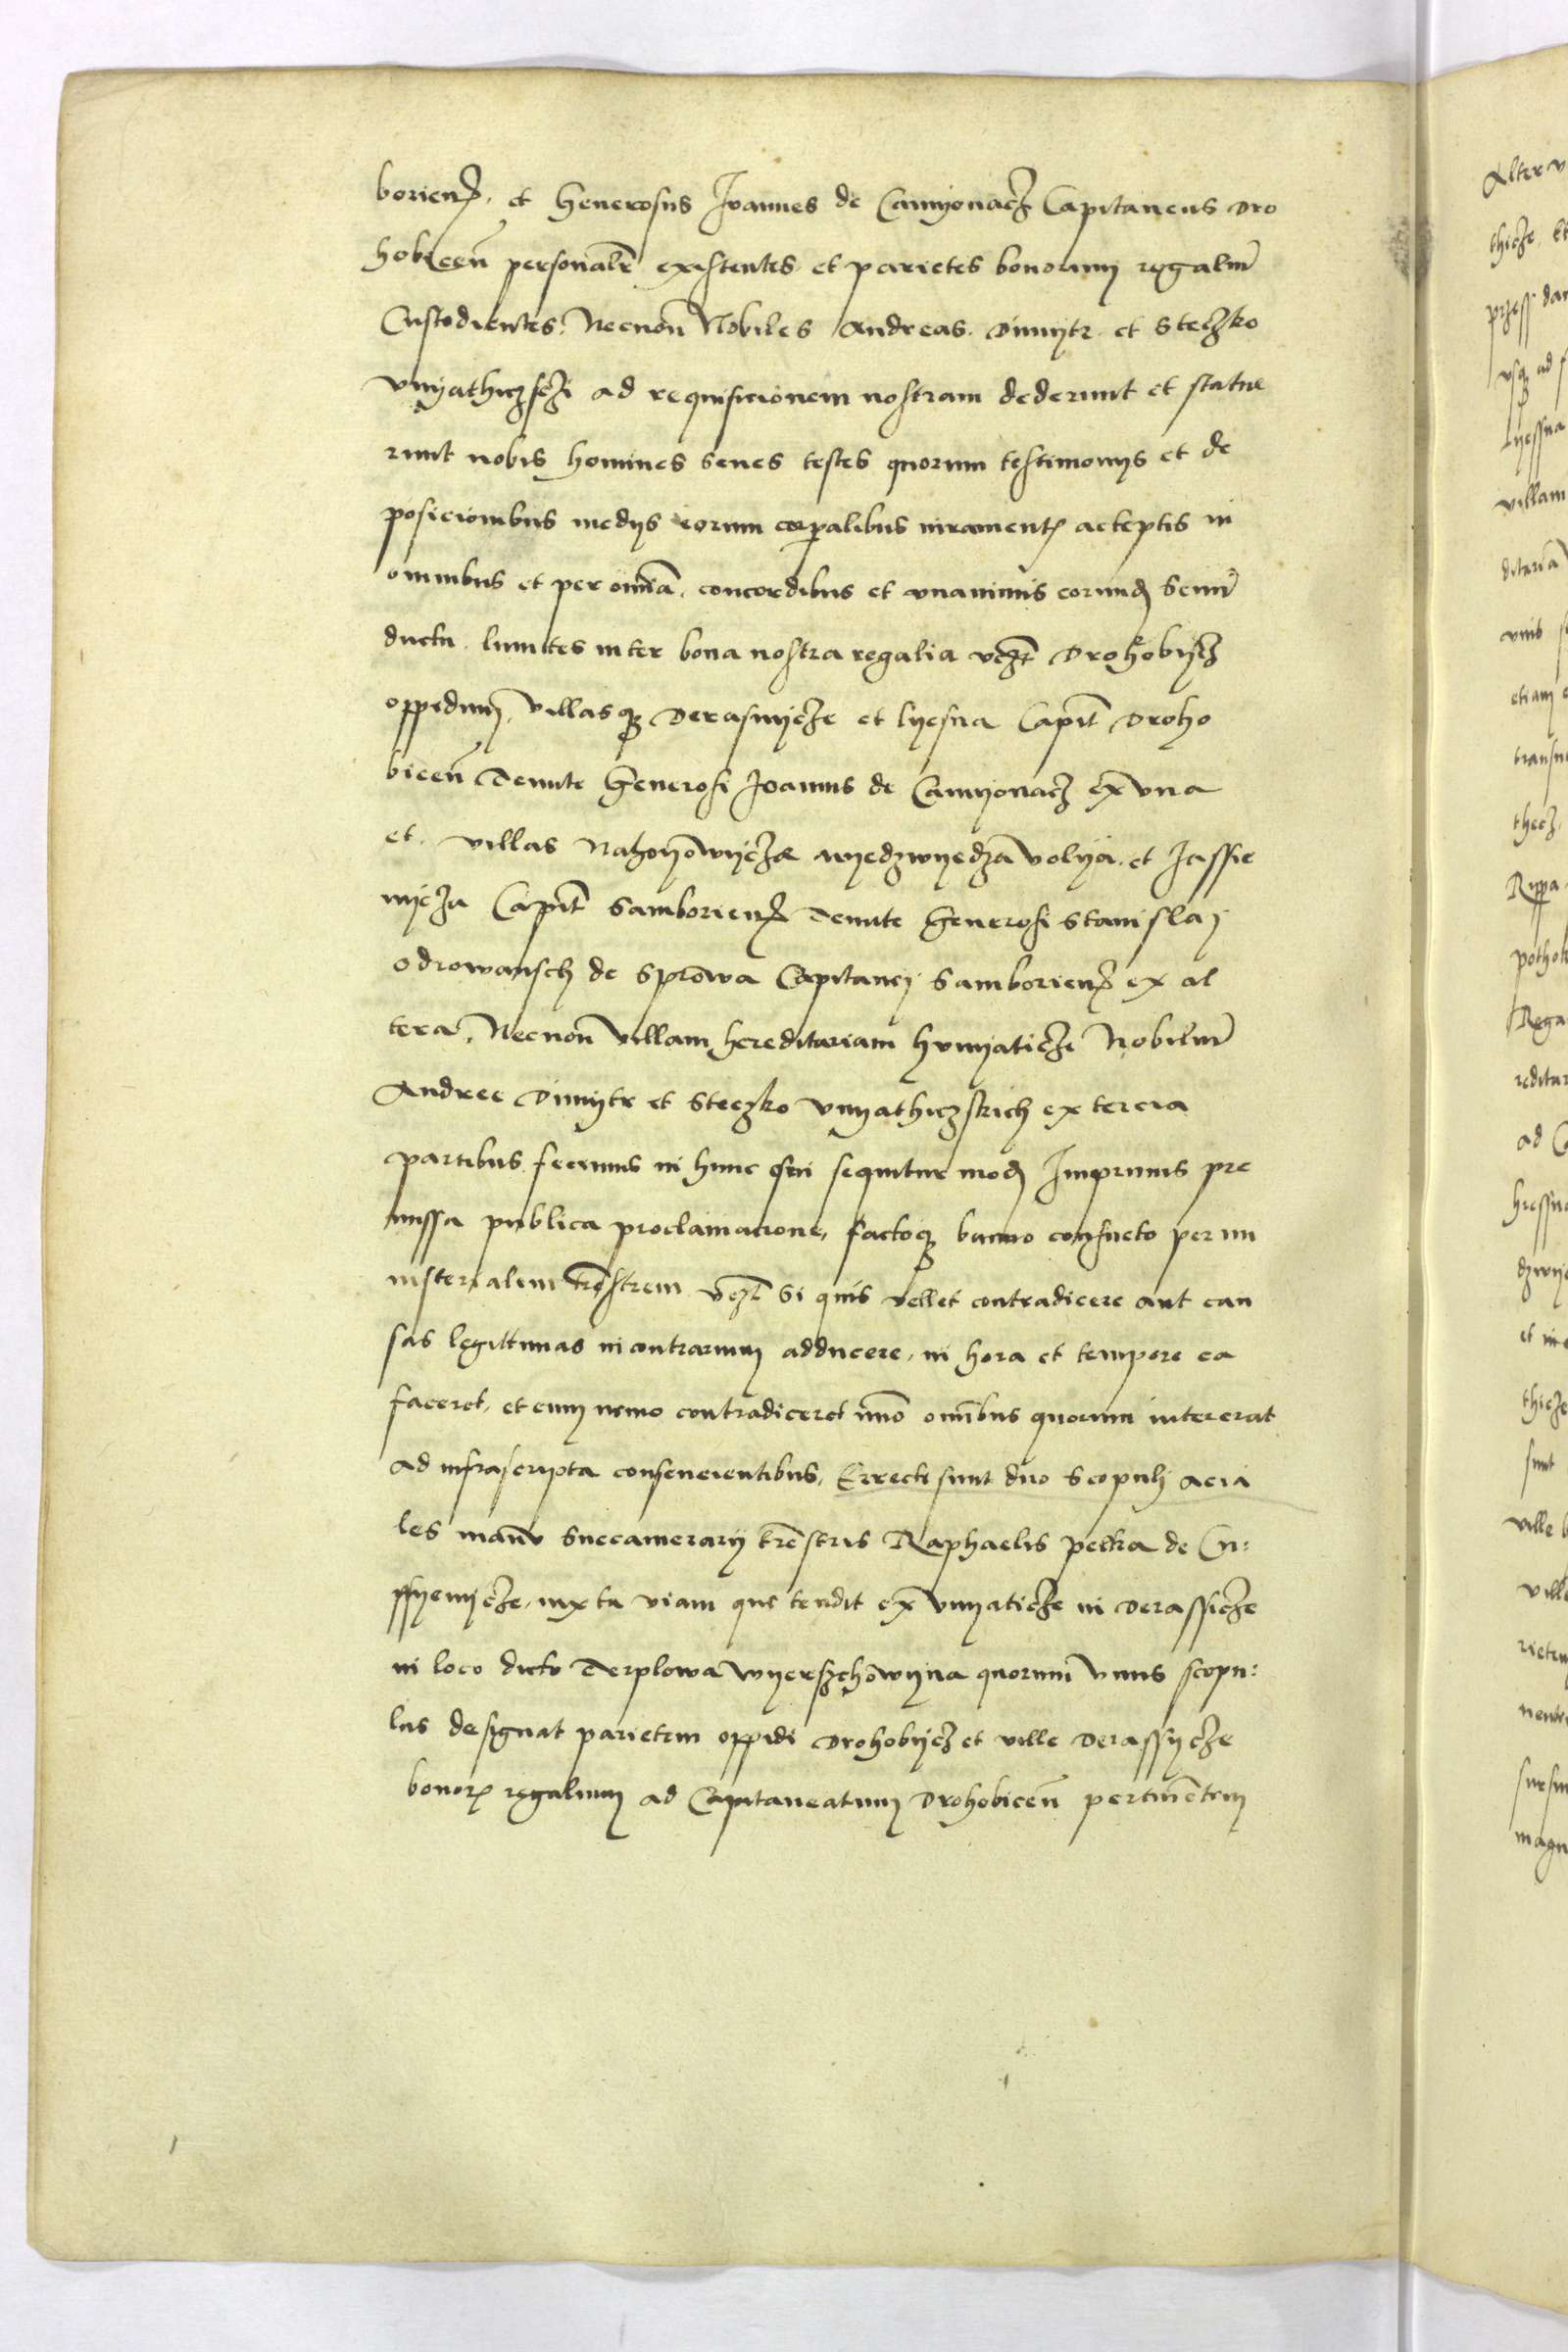 borien. et Generosus Joannes de Camyonacz Capitaneus Dro
hobicen personalr existentes et parietes bonorum regaliu
Custodientes, Necnon Nobiles Andreas. Dimytr. et Steczko
Vmyathiczsczi ad requisicionem nostram dederunt et statue
runt nobis homines senes testes quorum testimonijs et de
posicionibus medijs eorum corpalibus iurament acceptis in
omnibus et per omnia. concordibus et vnanimis eorund seniu
ductu. limites inter bona nostra regalia vczt Drohobycz
oppidum, villasq Derasniycze et lyesna Capit Droho
bicen Tenute Generosi Joannis de Camyonacz ex vna
et. villas Nahoyowycze nyedzwyedza volya. et Jassie
nycza Capit Samborien Tenute Generosi Stanislaj
Odrowansch de Sprowa Capitanej Samborien ex al
tera, Necnon villam hereditariam hvmyaticze Nobiliu
Andree Dimytr et Steczko Vmyathiczskich ex tercia
partibus fecimus in hunc qui sequitur mod Imprimis pre
missa publica proclamacione, factoq banno consueto per mi
nisterialem trestrem vczt Si quis vellet contradicere aut cau
sas legittimas in contrarium adducere, in hora et tempore ea
faceret, et cum nemo contradiceret imo omibus quorum intererat
ad infrascripta consencientibus, Errecti sunt duo Scopulj acia
les manu Succamerarij trestris Raphaelis pelka de Cu:
ssyenycze, iuxta viam que tendit ex vmyaticze in Derassicze
in loco dicto Terplowa Wyerszchowyna quorum vnus scopu:
lus designat parietem oppidi Drohobycz et ville Derassycze
bonor regalium ad Capitaneatum Drohobicen pertinentem